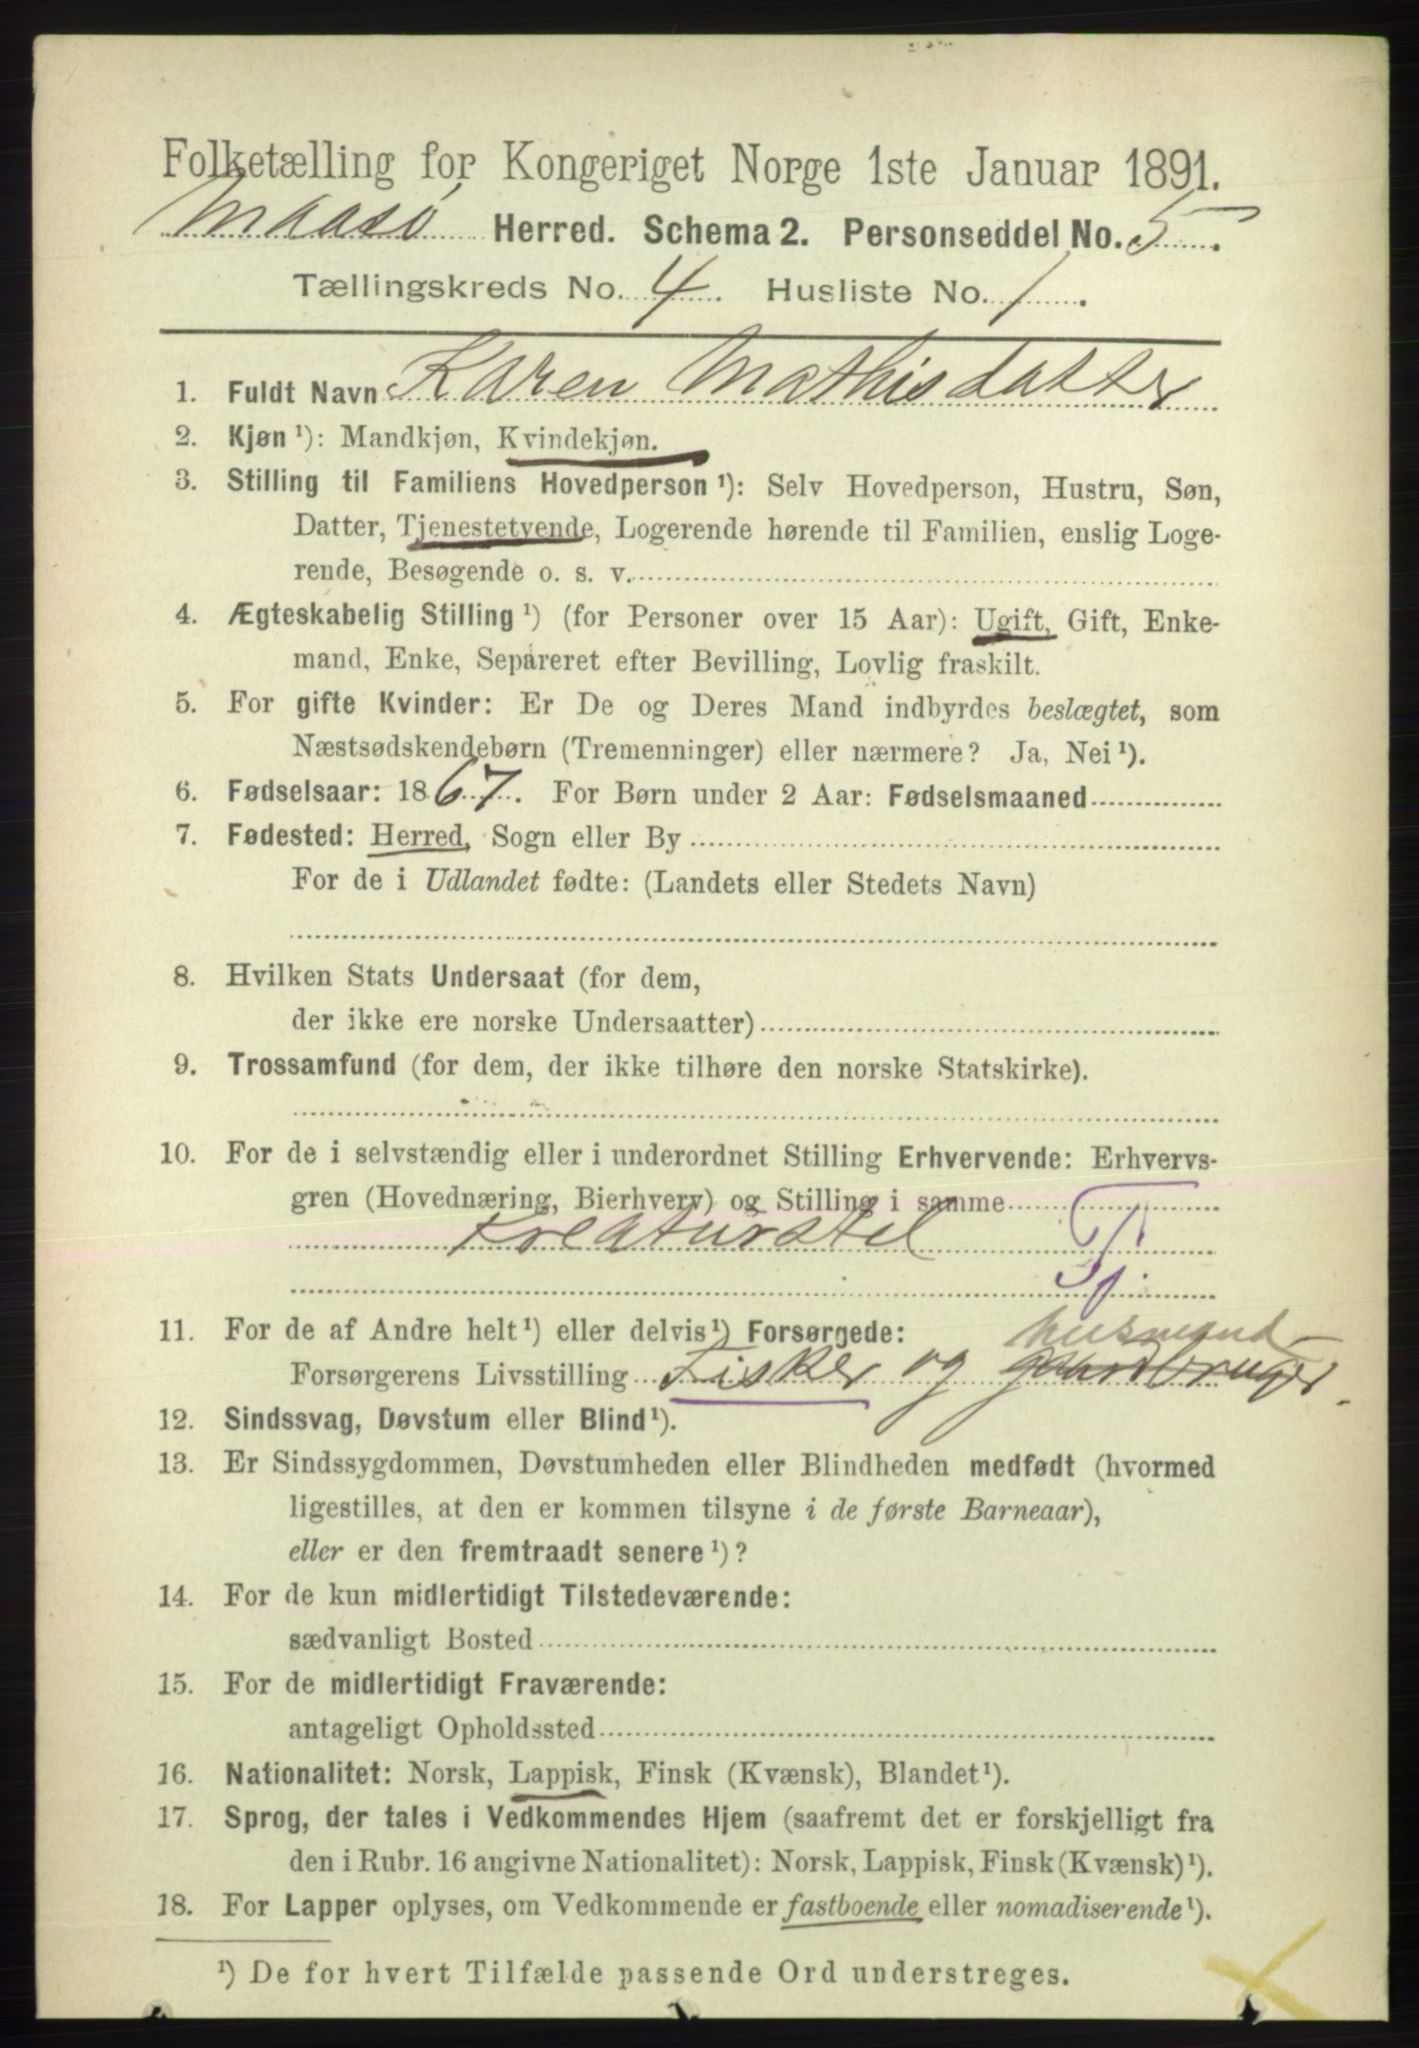 Folketælling for Kongeriget Norge 1ste Januar 1891.
Maasö Herred. Schema 2. Personseddel No. 5.
Tællingskreds No. 4. Husliste No. 1.
1. Fuldt Navn Karen Mathisdatter
2. Kjøn ¹): Mandkjøn, Kvindekjøn.
3. Stilling til Familiens Hovedperson ¹): Selv Hovedperson, Hustru, Søn,
Datter, Tjenestetyende, Logerende hørende til Familien, enslig Loge-
rende, Besøgende o. s. v.
4. Ægteskabelig Stilling ¹) (for Personer over 15 Aar): Ugift, Gift, Enke-
mand, Enke, Separeret efter Bevilling, Lovlig fraskilt.
5. For gifte Kvinder: Er De og Deres Mand indbyrdes beslægtet, som
Næstsødskendebørn (Tremenninger) eller nærmere? Ja, Nei ¹).
6. Fødselsaar: 1867. For Børn under 2 Aar: Fødselsmaaned
7. Fødested: Herred, Sogn eller By
For de i Udlandet fødte: (Landets eller Stedets Navn)
8. Hvilken Stats Undersaat (for dem,
der ikke ere norske Undersaatter)
9. Trossamfund (for dem, der ikke tilhøre den norske Statskirke).
10. For de i selvstændig eller i underordnet Stilling Erhvervende: Erhvervs-
gren (Hovednæring, Bierhverv) og Stilling i samme
Kreaturstel Tj.
11. For de af Andre helt ¹) eller delvis ¹) Forsørgede: husmand
Forsørgerens Livsstilling Fisker og gaardbruger.
12. Sindssvag, Døvstum eller Blind ¹).
13. Er Sindssygdommen, Døvstumheden eller Blindheden medfødt (hvormed
ligestilles, at den er kommen tilsyne i de første Barneaar),
eller er den fremtraadt senere ¹)?
14. For de kun midlertidigt Tilstedeværende:
sædvanligt Bosted
15. For de midlertidigt Fraværende:
antageligt Opholdssted
16. Nationalitet: Norsk, Lappisk, Finsk (Kvænsk), Blandet ¹).
17. Sprog, der tales i Vedkommendes Hjem (saafremt det er forskjelligt fra
den i Rubr. 16 angivne Nationalitet): Norsk, Lappisk, Finsk (Kvænsk) ¹).
18. For Lapper oplyses, om Vedkommende er fastboende eller nomadiserende ¹).
¹) De for hvert Tilfælde passende Ord understreges.